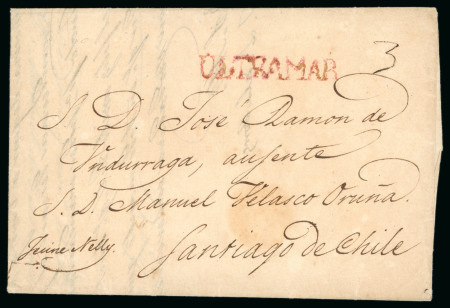 ULTRAMAR
3
S. D. Jose Ramon de
Undurraga, ausente
S. D. Manuel Velasco Oruña.
Jeune Nelly.
Santiago de Chile